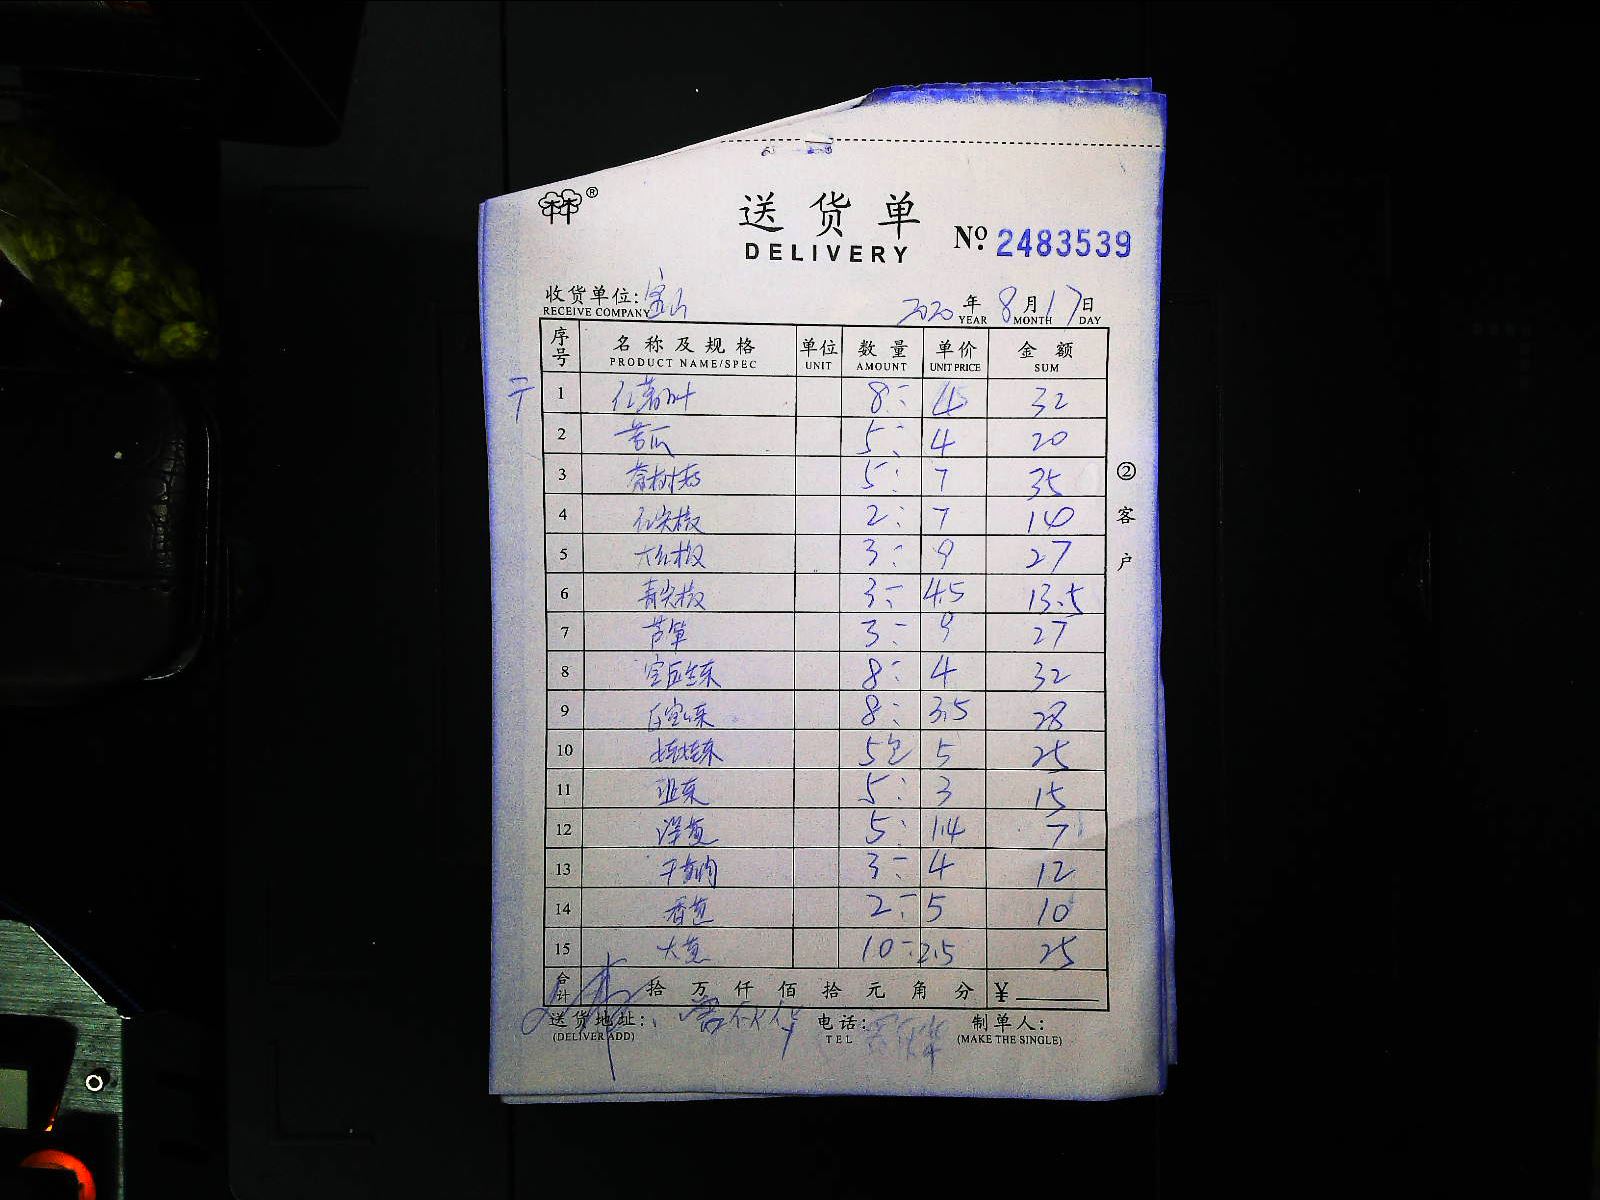 ®
送货单
DELIVERY
No. 2483539
收货单位: 宝山 2020年8月17日
RECEIVE COMPANY YEAR MONTH DAY
序号 名称及规格 单位 数量 单价 金额
PRODUCT NAME/SPEC UNIT AMOUNT UNIT PRICE SUM
1 红薯叶 8 4 32
2 苦瓜 5 4 20
3 茶树菇 5 7 35
4 红尖椒 2 7 14
5 大红椒 3 9 27
6 青尖椒 3 4.5 13.5
7 芦笋 3 9 27
8 8 4 32
9 8 3.5 28
10 娃娃菜 5包 5 25
11 5 3 15
12 洋葱 5 1.4 7
13 3 4 12
14 香葱 2 5 10
15 大葱 10 2.5 25
合计 拾万仟佰拾元角分 ¥
送货地址: 电话: 制单人:
(DELIVER ADD) TEL (MAKE THE SINGLE)
②客户